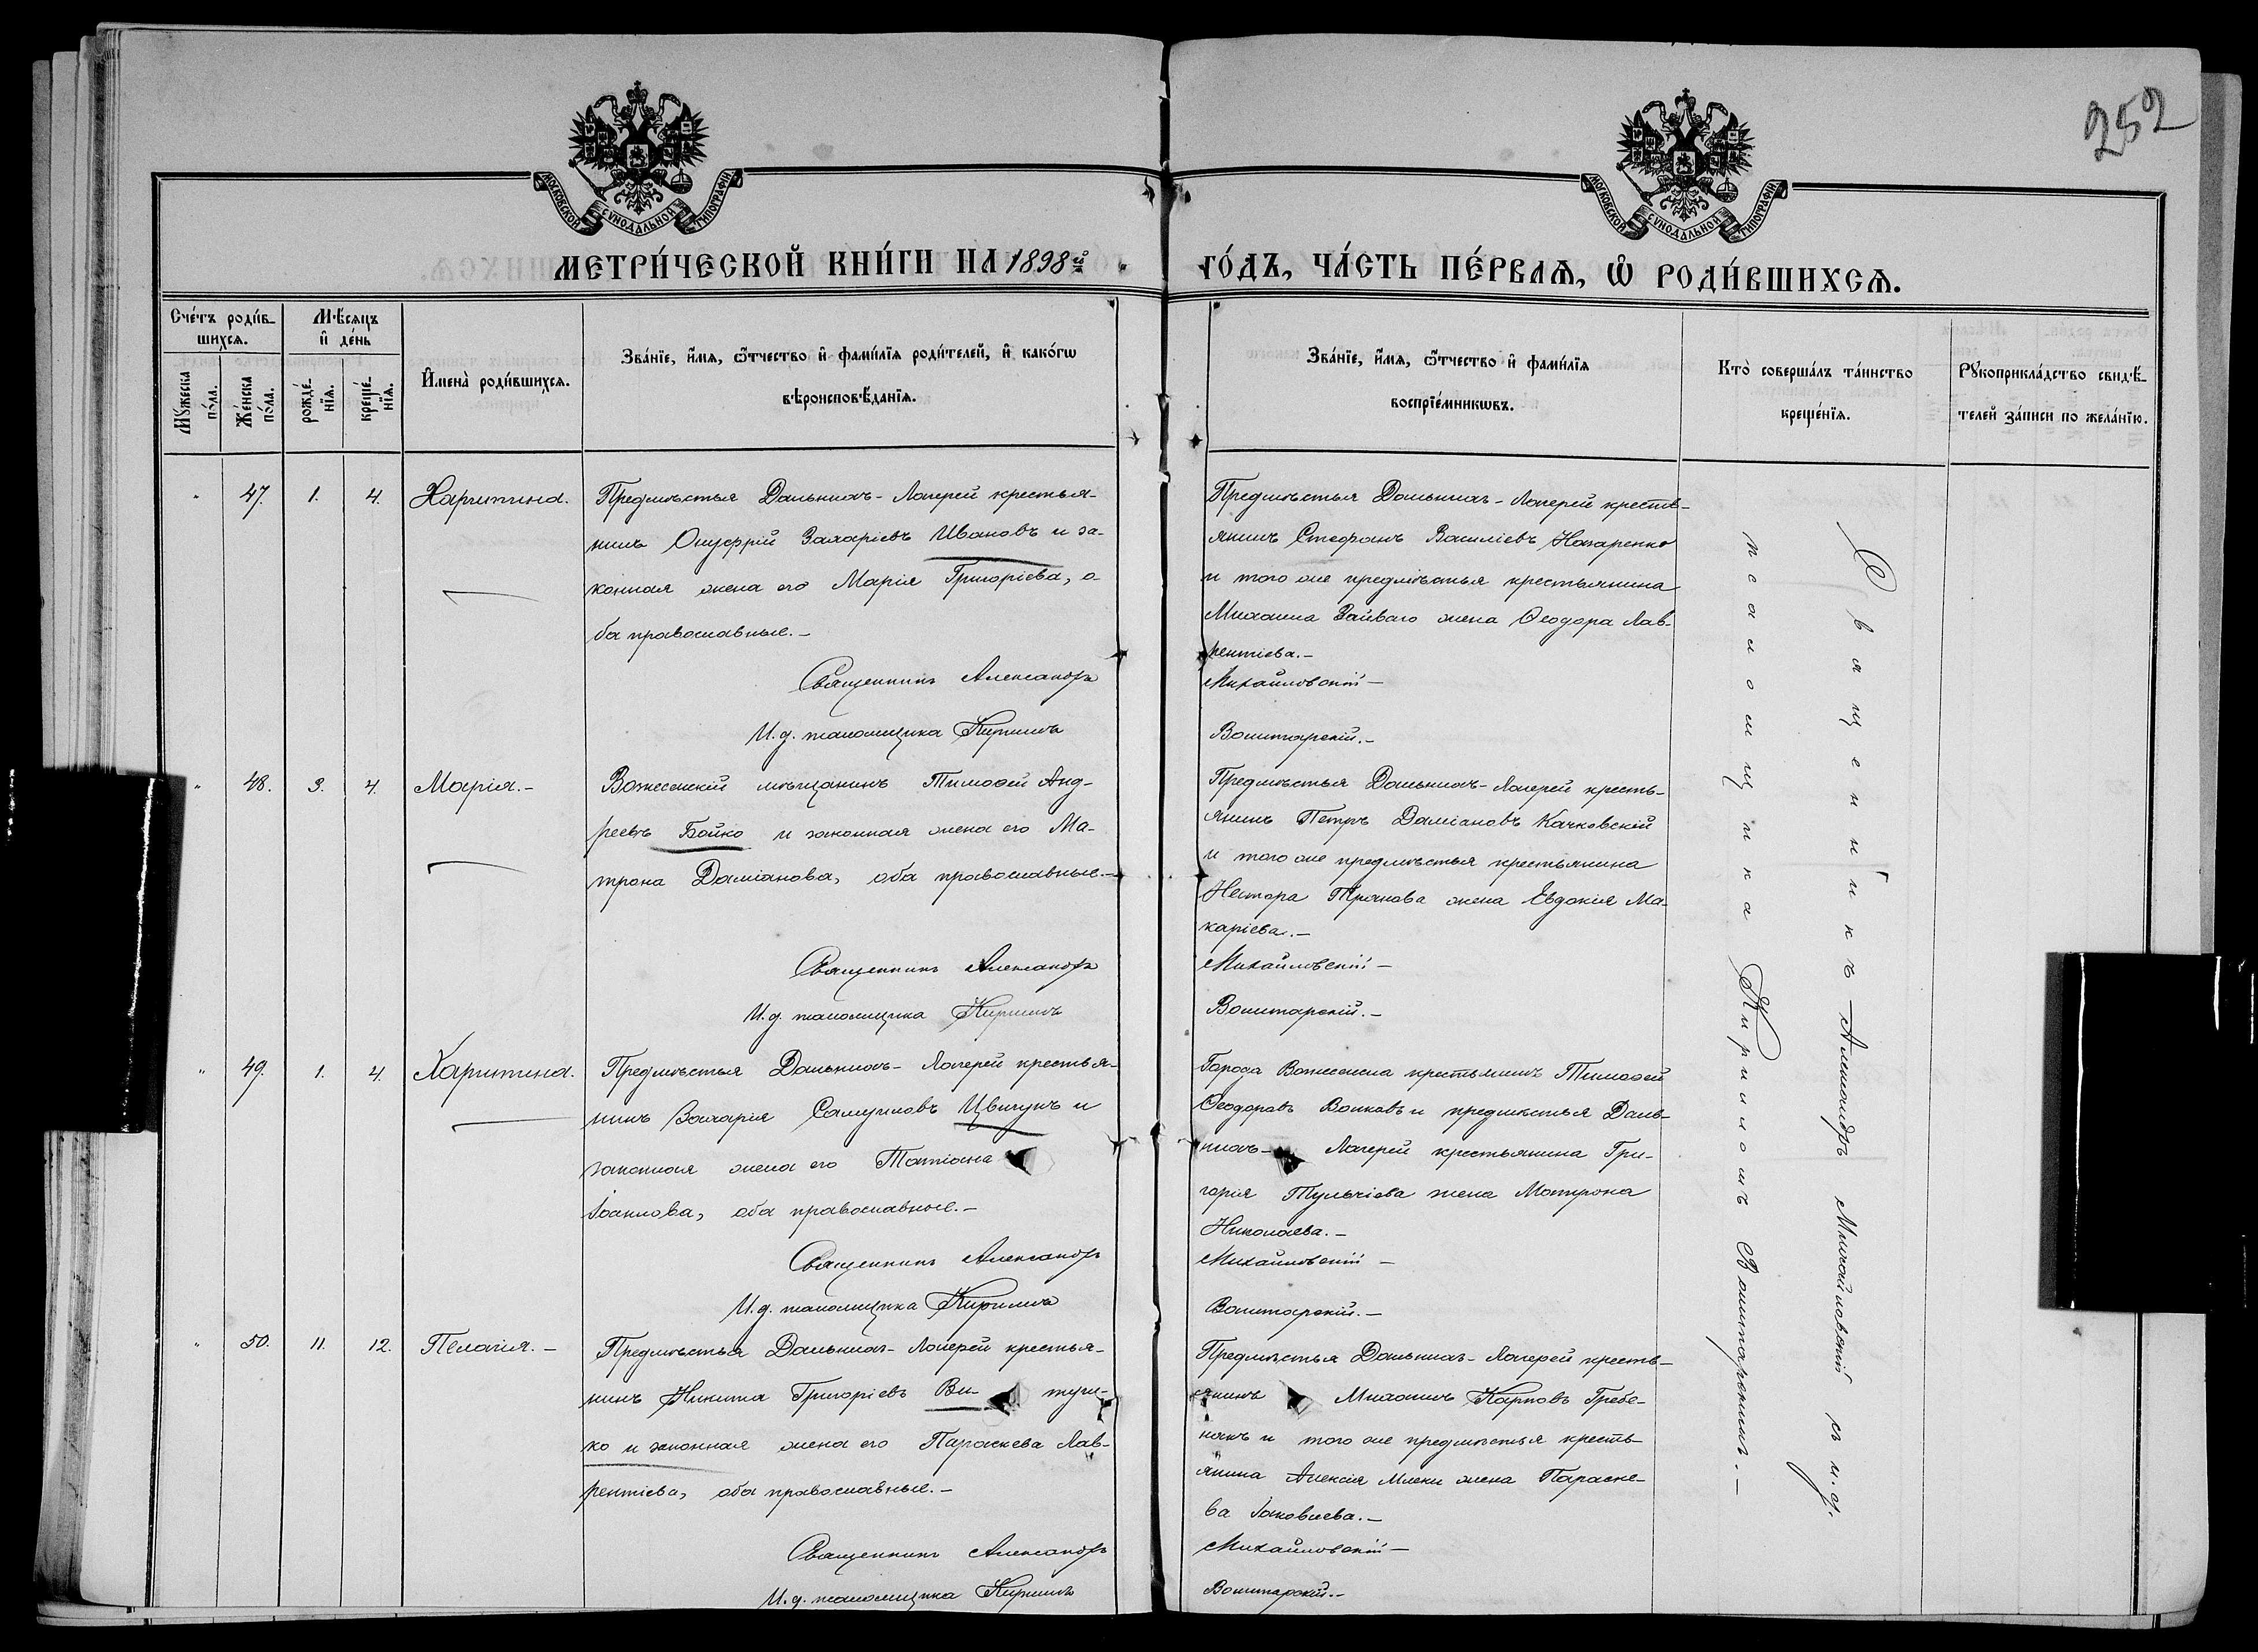 252
МОСКОВСКОЙ СѴНОДАЛЬНОЙ ТИПОГРАФІИ
МОСКОВСКОЙ СѴНОДАЛЬНОЙ ТИПОГРАФІИ
МЕТРИ́ЧЕСКОЙ КНИ́ГИ НА 1898й
ГО́ДЪ, ЧА́СТЬ ПЕ́РВАѦ, Ѡ҆ РОДИ́ВШИХСѦ.
Сче́тъ роди́в-
шихсѧ.
Мꙋ́жеска по́ла.
Же́нска по́ла.
Мѣ́сѧцъ
и҆ де́нь
рожде́нїѧ.
креще́нїѧ.
И҆мена̀ роди́вшихсѧ.
Зва́нїе, и҆́мѧ, ѻ҆́тчество и҆ фами́лїѧ роди́телей, и҆ како́гѡ
вѣроисповѣ́данїѧ.
Зва́нїе, и҆́мѧ, ѻ҆́тчество и҆ фами́лїѧ
воспрїе́мникѡвъ.
Кто̀ соверша́лъ та́инство
креще́нїѧ.
Рꙋкоприкла́дство свидѣ́-
телей за́писи по жела́нїю.
" 47. 1. 4. Харитина.
Предмѣстья Дальнихъ-Лагерей крестья-
нинъ Онуфрій Захаріевъ Ивановъ и за-
конная жена его Марія Григоріева, о-
ба православные.-
Священникъ Александръ
И.д. псаломщика Кириллъ
Предмѣстья Дальнихъ-Лагерей кресть-
янинъ Стефанъ Василіевъ Назаренко
и того же предмѣстья крестьянина
Михаила жена Ѳеодора Лав-
рентіева.-
Михайловскій-
" 48. 3. 4. Марія.-
Вознесенскій мѣщанинъ Тимоѳей Анд-
реевъ Бойко и законная жена его Ма-
трона Даміанова, оба православные.-
Священникъ Александръ
И.д. псаломщика Кириллъ
Предмѣстья Дальнихъ-Лагерей кресть-
янинъ Петръ Даміановъ Качковскій
и того же предмѣстья крестьянина
Нестора жена Евдокія Ма-
каріева.-
Михайловскій-
" 49. 1. 4. Харитина.
Предмѣстья Дальнихъ-Лагерей крестья-
нинъ Захарія Самуиловъ Цвигунъ и
законная жена его Татіана
Іоаннова, оба православные.-
Священникъ Александръ
И.д. псаломщика Кириллъ
Города Вознесенска крестьянинъ Тимоѳей
Ѳеодоровъ Волковъ и предмѣстья Даль-
нихъ- Лагерей крестьянина Гри-
горія Тульчіева жена Матрона
Николаева.-
Михайловскій-
" 50. 11. 12. Пелагія.-
Предмѣстья Дальнихъ-Лагерей крестья-
нинъ Никита Григоріевъ
ко и законная жена его Параскева Лав-
рентіева, оба православные.-
Священникъ Александръ
И.д. псаломщика Кириллъ
Предмѣстья Дальнихъ-Лагерей кресть-
янинъ Михаилъ Карповъ Гребе-
никъ и того же предмѣстья кресть-
янина Алексія жена Параске-
ва Іаковлева.-
Михайловскій-
Священникъ Александръ Михайловскій съ и.д.
псаломщика Кирилломъ